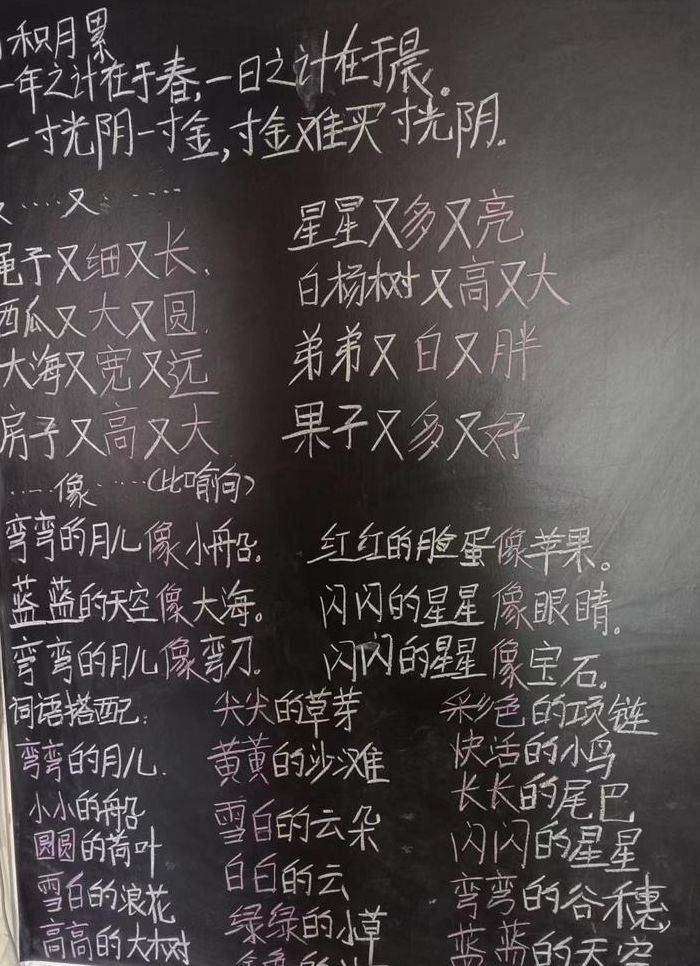 积月累
一年之计在于春,一日之计在于晨。
一寸光阴一寸金,寸金难买寸光阴。
又……又……
绳子又细又长.
西瓜又大又圆.
大海又宽又远
房子又高又大
星星又多又亮
白杨树又高又大
弟弟又白又胖
果子又多又好
……像……(比喻句)
弯弯的月儿像小船。
蓝蓝的天空像大海。
弯弯的月儿像弯刀.
红红的脸蛋像苹果。
闪闪的星星像眼睛。
闪闪的星星像宝石。
词语搭配:
弯弯的月儿.
小小的船
圆圆的荷叶
雪白的浪花
高高的大树
尖尖的草芽
黄黄的沙滩
雪白的云朵
白白的云
绿绿的小草
彩色的项链
快活的小鸟
长长的尾巴
闪闪的星星
弯弯的谷穗,
蓝蓝的天空